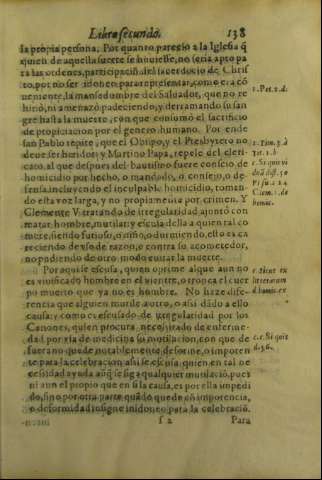 Libro segundo. 138
la propria persona. Por quanto pareçio a la Iglesia q̃
quien de aquella suerte se houiesse, no seria apto pa
ra las ordenes, participaciõ del sacerdocio de Chris
to, por no ser idoneo para representar, como era cõ
ueniente, la mansedumbre del Saluador, que no re
hirió, ni amenazò padeciendo, y derramando su san
gre hasta la muerte, con que consumó el sacrificio
de propiciacion por el genero humano. Por ende
san Pablo repite, que el Obispo, y el Presbytero no
deue ser heridor: y Martino Papa, repele del cleri-
cato, al que despues del bautismo fuere conscio de
homicidio por hecho, o mandado, o consejo, o de-
fensa, incluyendo el inculpable homicidio, toman-
do esta voz larga, y no propiamente por crimen. Y
Clemente V. tratando de irregularidad ajuntó con
matar hombre, mutilar: y escusa della a quien tal co
mete, siendo furioso, o niño, o durmiendo, esto es ca
reciendo de vso de razon, o contra su acometedor,
no pudiendo de otro modo euitar la muerte.
Por aqui se escusa, quien oprime algue aun no
es viuificado hombre en el vientre, o troca el cuer
po muerto que ya no es hombre. No haze dife-
rencia que alguien murde a otro, o assi dado a ello
causa: y como es escusado de irregularidad por los
Canones, quien procura, necessitado de enferme-
dad por via de medicina su mutilacion, con que de
fuera no quede notablemente deforme, o impoten
te para la celebracion: assi se escusa, quien en tal ne
cessidad ayuda aũq̃ se siga qualquier mutilaciõ, pues
ni aun el propio que en si la causa, es por ella impedi
do, sino por otra parte quãdo quede cõ impotencia,
o deformidad insigne inidoneo para la celebraciõ.
S 2 Para
1. Pet. 2. d.
1. Tim. 3. à
Tit. 1. b